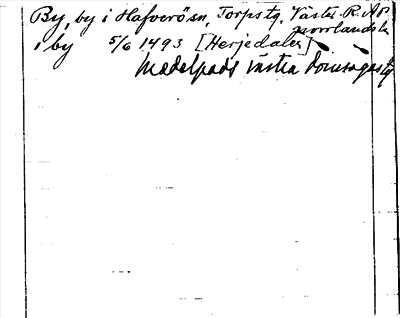 By, by i Hafverösn, Torps tg, Väster-
norrlands l.
i by 5/6 1493 [Herjedalen]
Medelpads västra domsagas tg